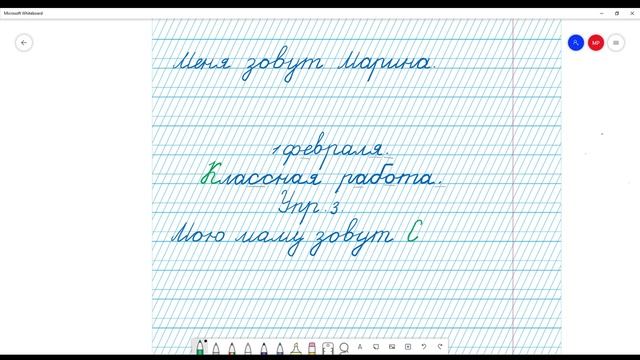 Microsoft Whiteboard
MP
Меня зовут Марина.
1 февраля.
Классная работа.
Упр. 3
Мою маму зовут С